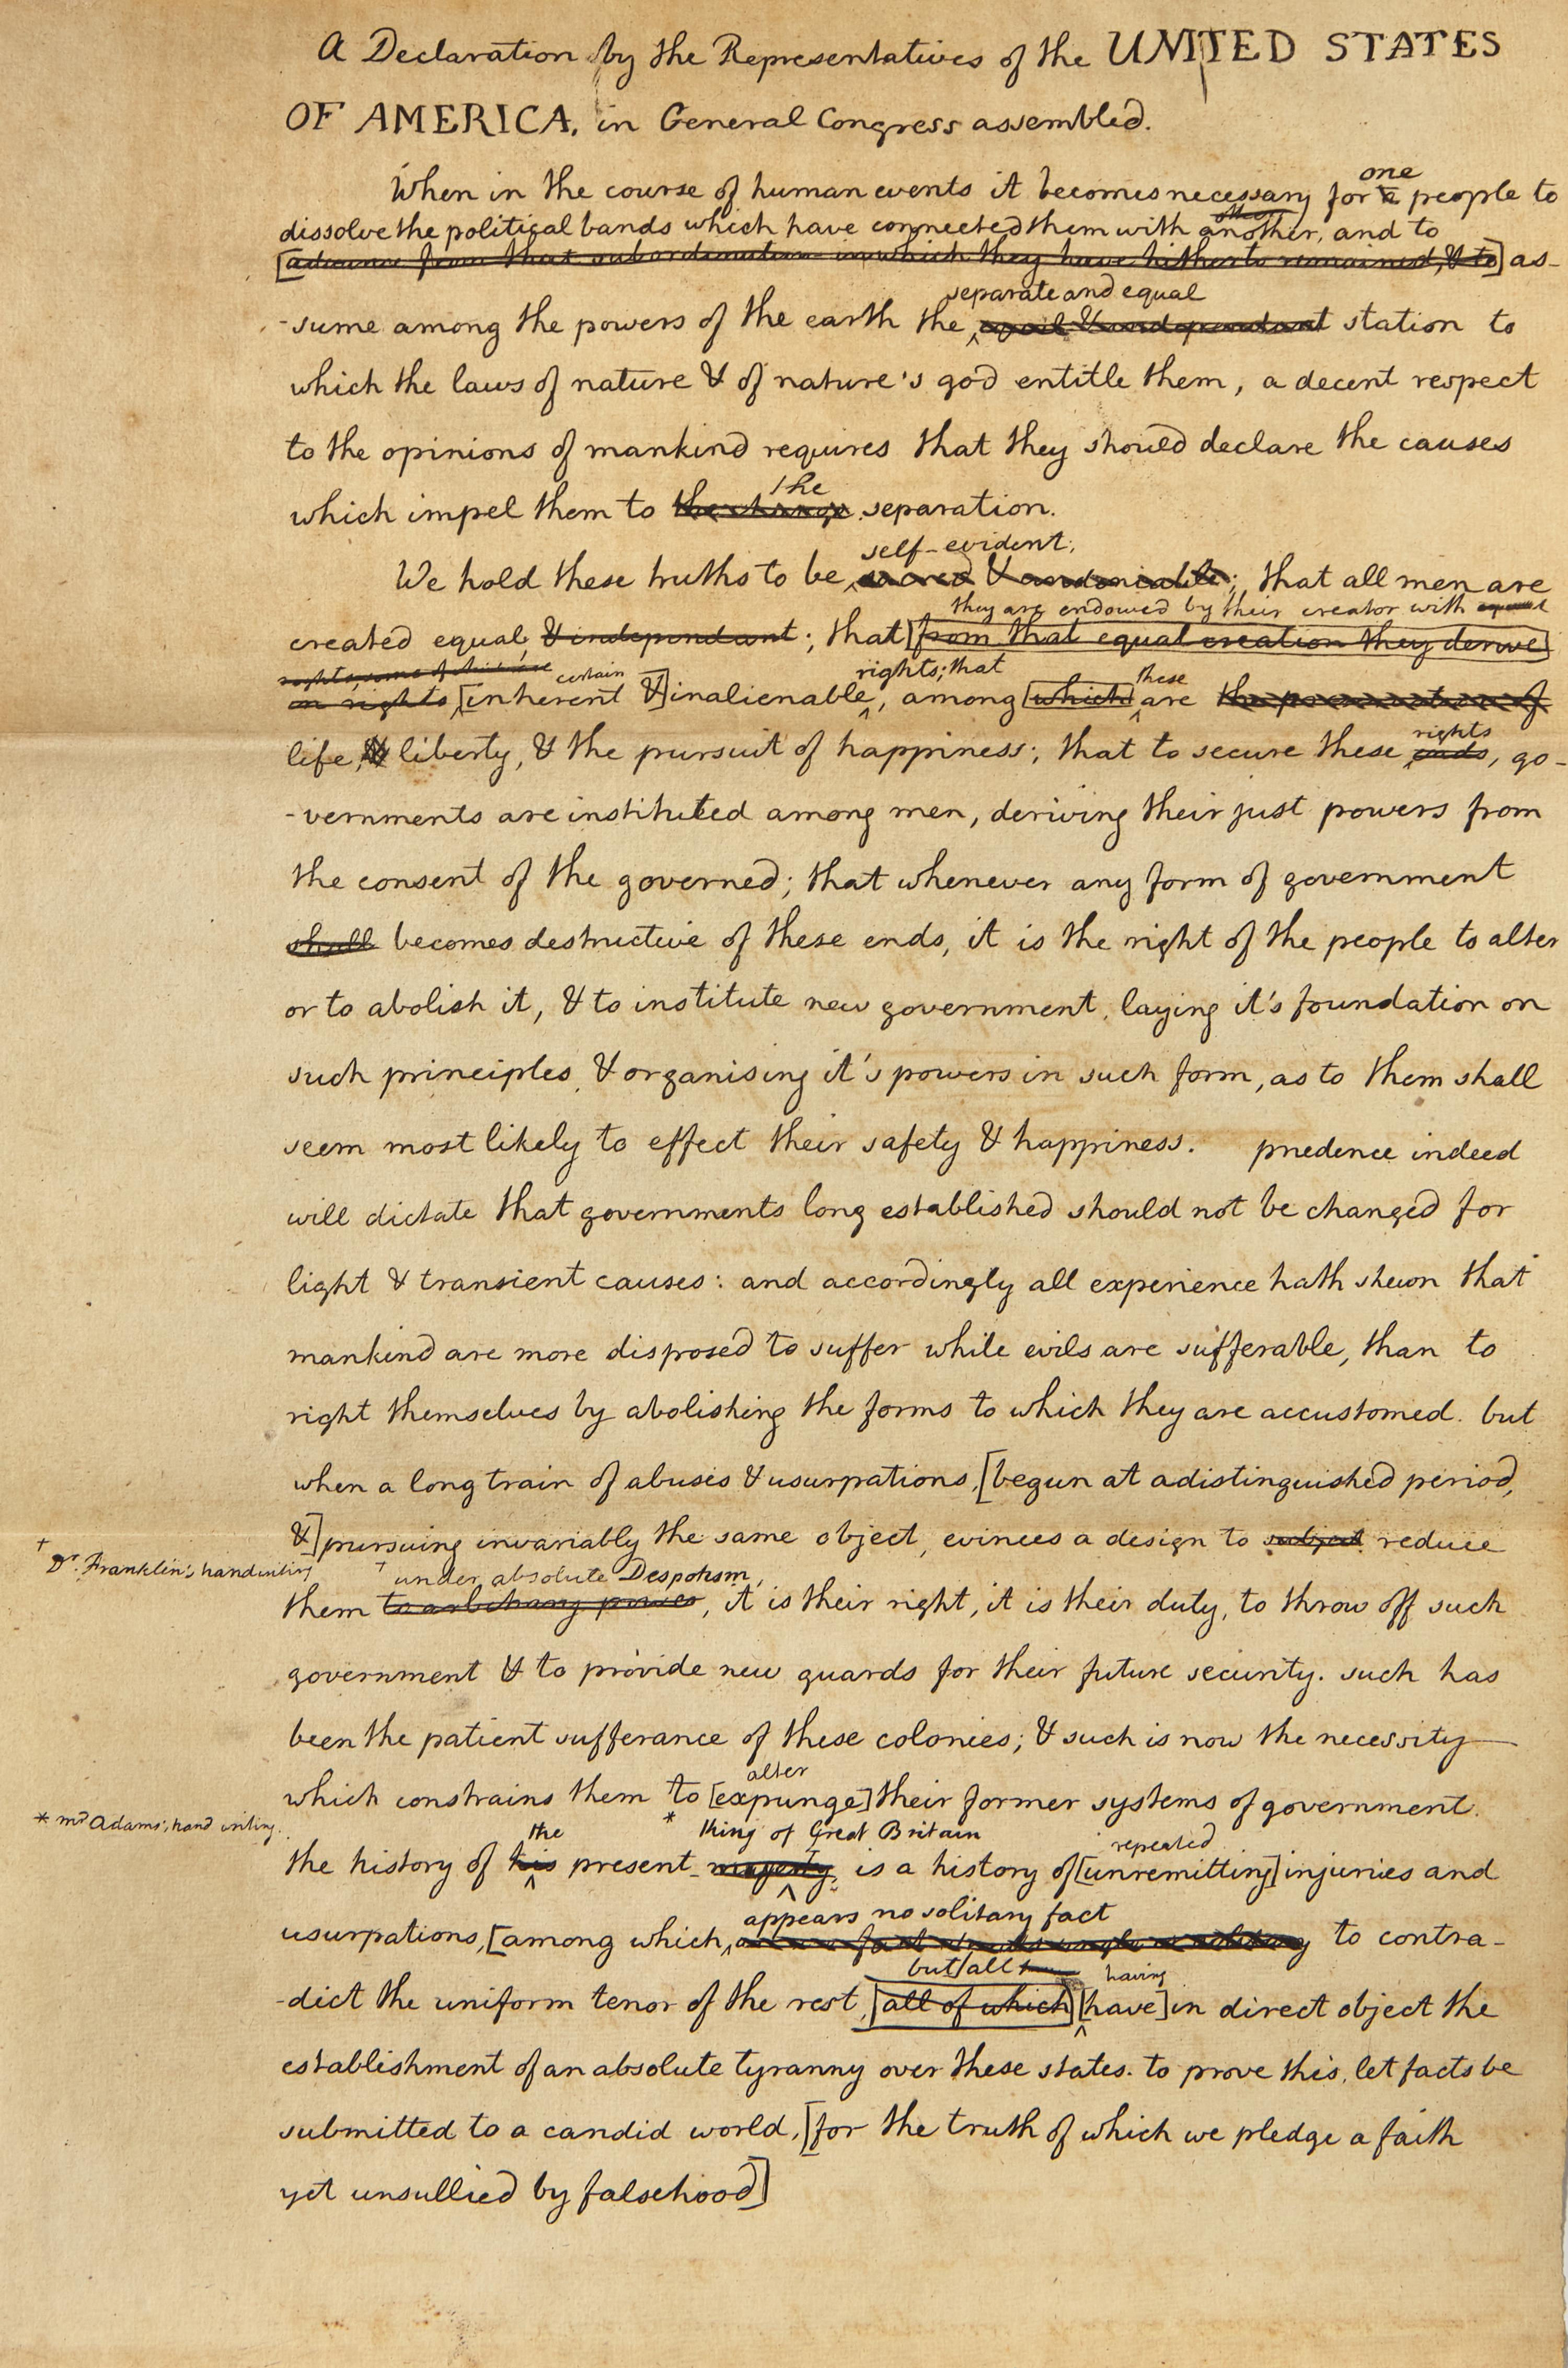 A Declaration by the Representatives of the UNITED STATES
OF AMERICA, in General Congress assembled.
one
When in the course of human events it becomes necessary for a people to
dissolve the political bands which have connected them with another, and to
advance from that subordination in which they have hitherto remained, & to] as-
separate and equal
-sume among the powers of the earth the equal & independant station to
which the laws of nature & of nature's god entitle them, a decent respect
to the opinions of mankind requires that they should declare the causes
the
which impel them to the change separation.
self-evident;
We hold these truths to be sacred & undeniable; that all men are
they are endowed by their creator with equal
created equal, & independant; that [from that equal creation they derive]
rights, some of which are certain rights; that these
in rights [inherent &] inalienable, among [which] are the preservation of
rights
life, & liberty, & the pursuit of happiness; that to secure these ends, go-
-vernments are instituted among men, deriving their just powers from
the consent of the governed; that whenever any form of government
shall becomes destructive of these ends, it is the right of the people to alter
or to abolish it, & to institute new government, laying it's foundation on
such principles & organising it's powers in such form, as to them shall
seem most likely to effect their safety & happiness. prudence indeed
will dictate that governments long established should not be changed for
light & transient causes: and accordingly all experience hath shewn that
mankind are more disposed to suffer while evils are sufferable, than to
right themselves by abolishing the forms to which they are accustomed. but
when a long train of abuses & usurpations, [begun at a distinguished period,
&] pursuing invariably the same object, evinces a design to subject reduce
† Dr. Franklin's handwriting
† under absolute Despotism,
them to arbitrary power, it is their right, it is their duty, to throw off such
government & to provide new guards for their future security. such has
been the patient sufferance of these colonies; & such is now the necessity
alter
which constrains them to [expunge] their former systems of government.
* Mr Adams' hand writing.
the * king of Great Britain repeated
the history of his present majesty, is a history of [unremitting] injuries and
appears no solitary fact
usurpations, [among which, fact stands single or solitary to contra-
but all having
-dict the uniform tenor of the rest, [all of which] [have] in direct object the
establishment of an absolute tyranny over these states. to prove this, let facts be
submitted to a candid world, [for the truth of which we pledge a faith
yet unsullied by falsehood]